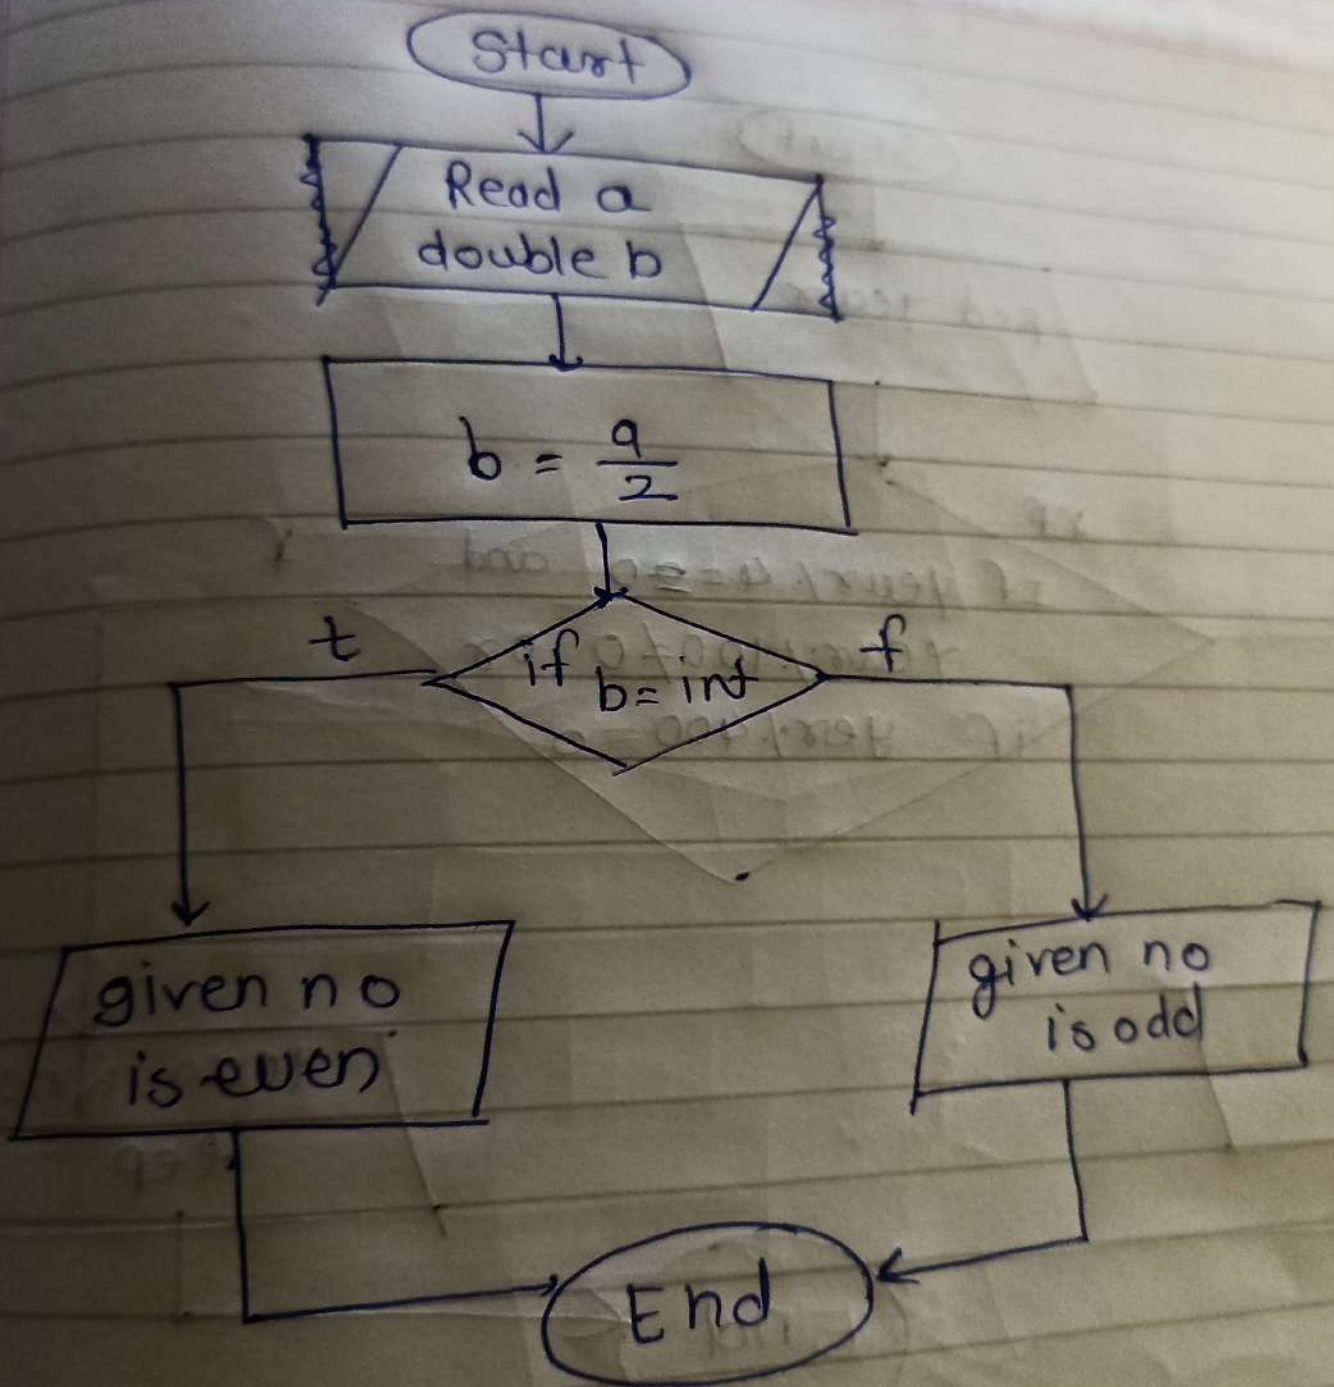 Start
Read a
double b
b = a/2
t
if
b = int
f
given no
is even
given no
is odd
End